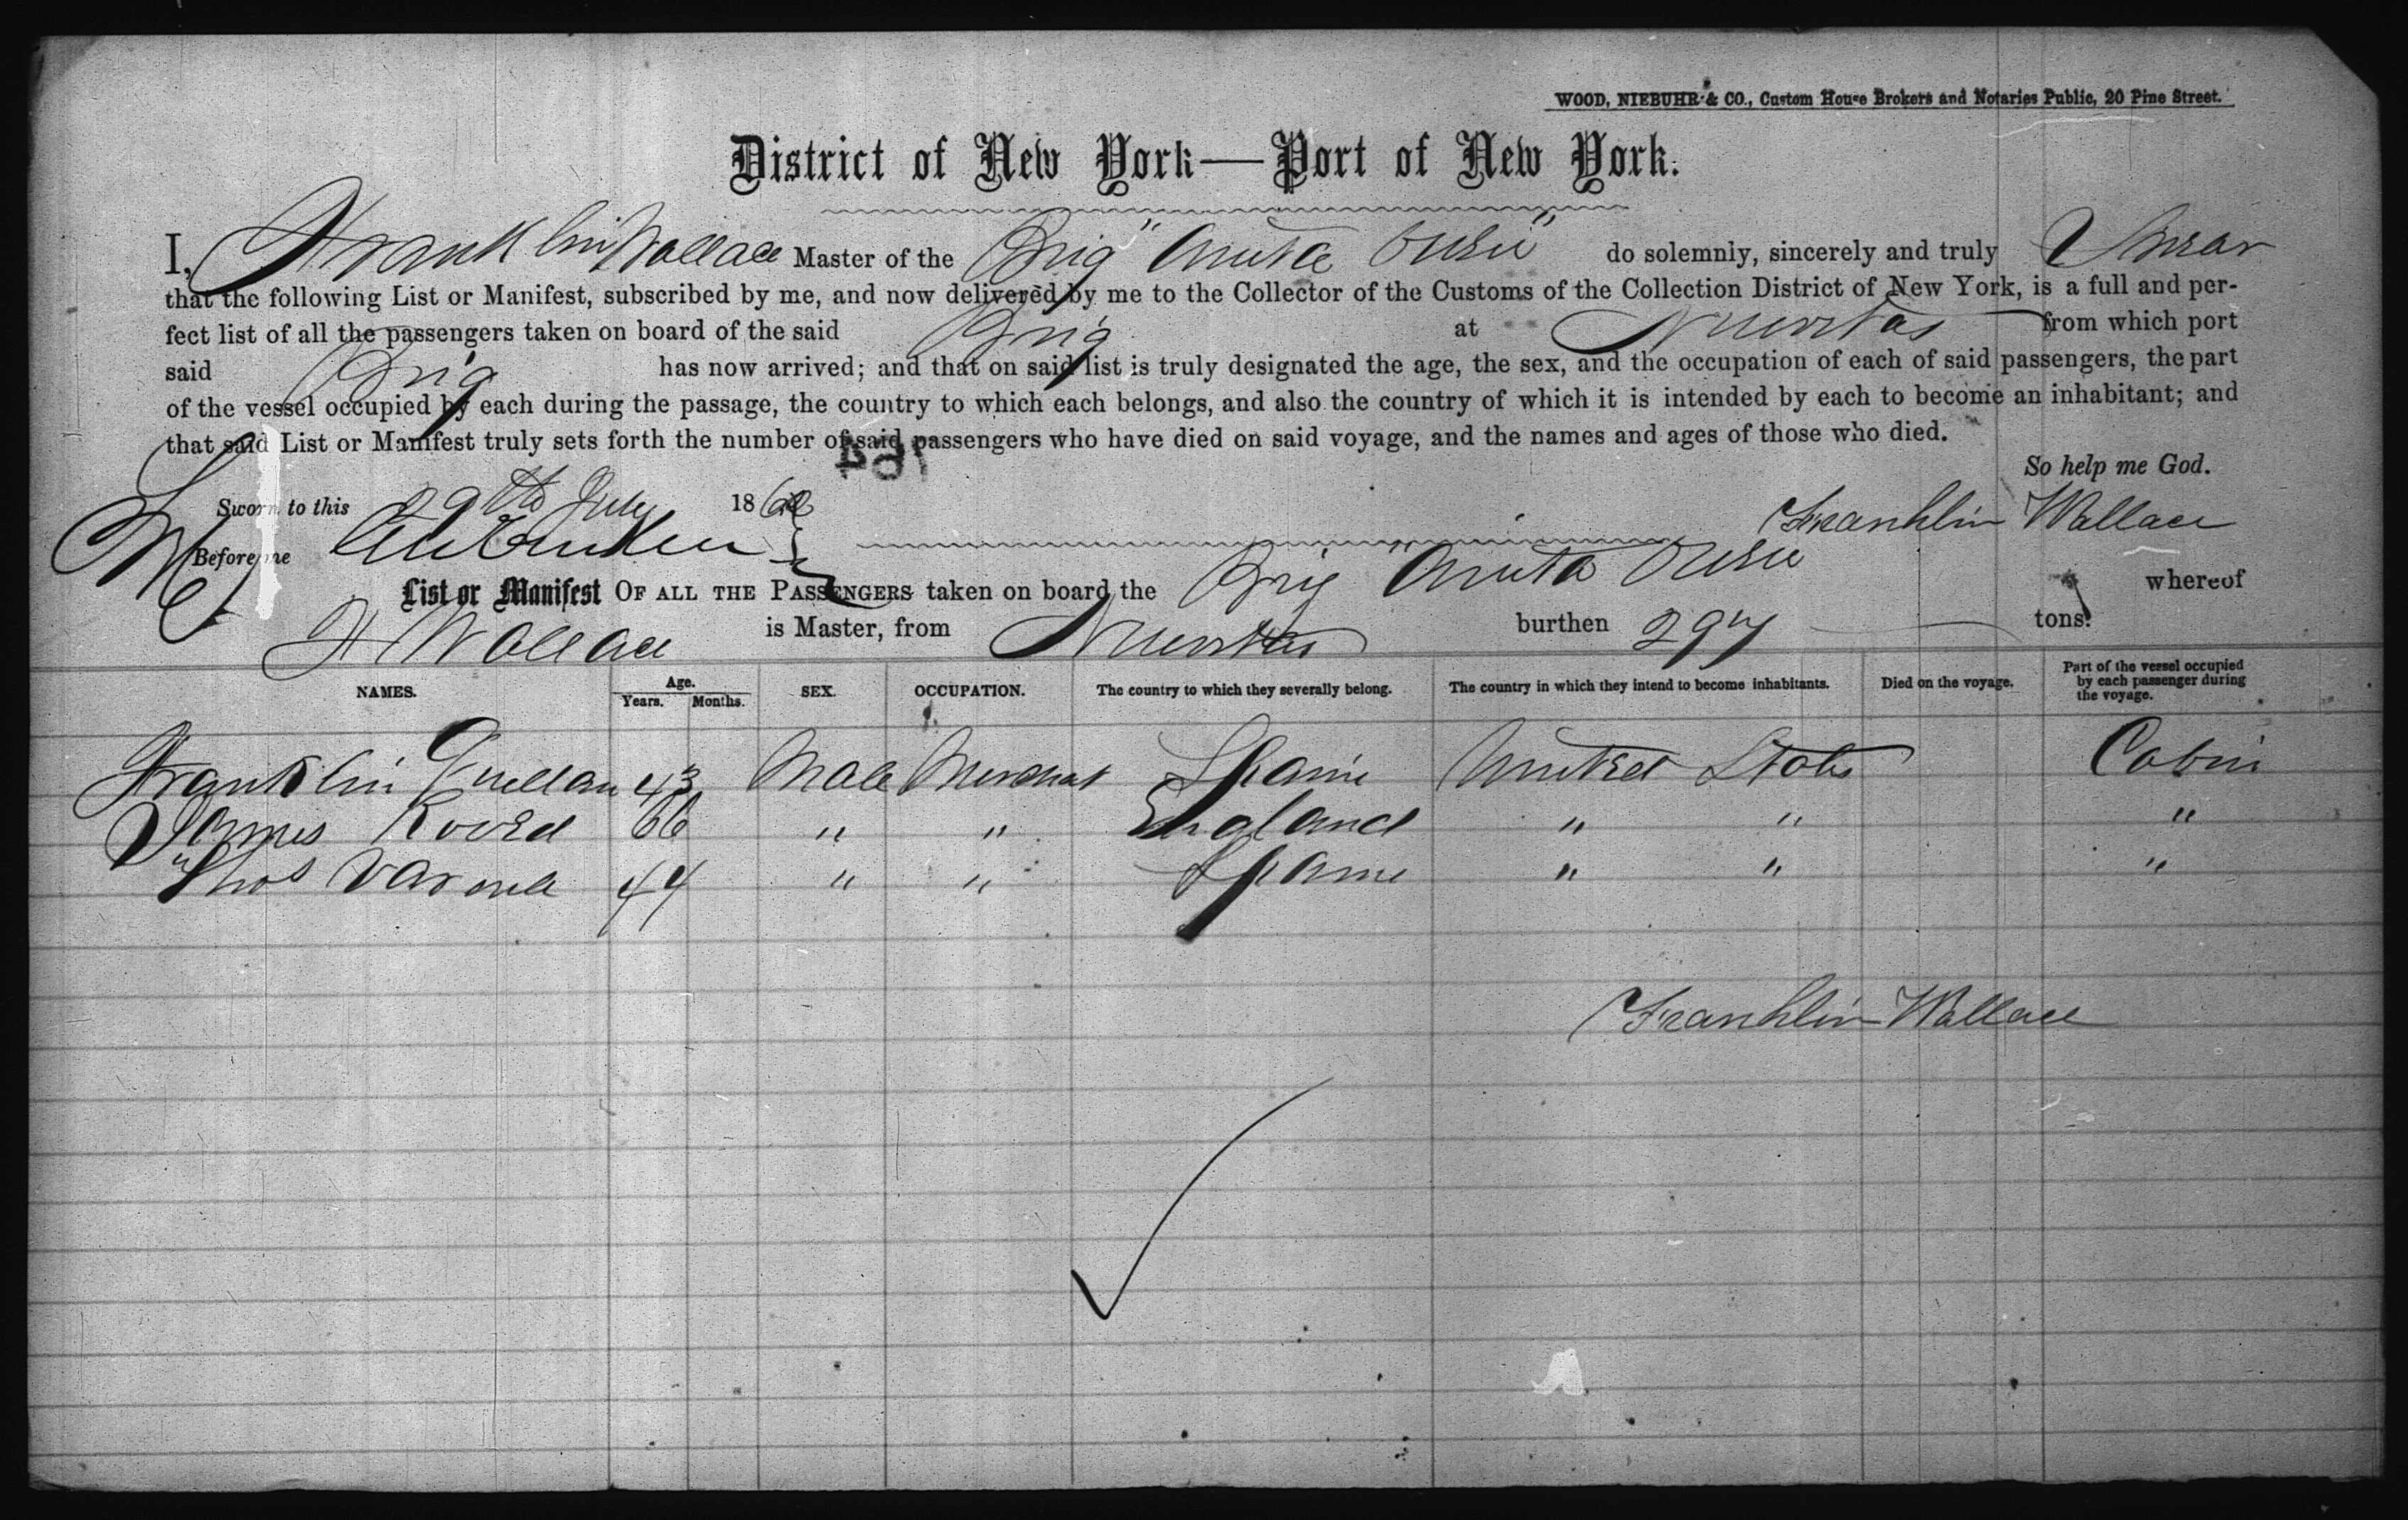 WOOD, NIEBUHR & CO., Custom House Brokers and Notaries Public, 20 Pine Street.
District of New York—Port of New York.
I, Franklin Wallace Master of the Brig "Anita Owen" do solemnly, sincerely and truly Swear
that the following List or Manifest, subscribed by me, and now delivered by me to the Collector of the Customs of the Collection District of New York, is a full and per-
fect list of all the passengers taken on board of the said Brig at Nuevitas from which port
said Brig has now arrived; and that on said list is truly designated the age, the sex, and the occupation of each of said passengers, the part
of the vessel occupied by each during the passage, the country to which each belongs, and also the country of which it is intended by each to become an inhabitant; and
that said List or Manifest truly sets forth the number of said passengers who have died on said voyage, and the names and ages of those who died.
764
So help me God.
Sworn to this 29th July 186
Franklin Wallace
Before me
List or Manifest OF ALL THE PASSENGERS taken on board the Brig "Anita Owen whereof
F Wallace is Master, from Nuevitas burthen 297 tons.
NAMES. Age. Years. Months. SEX. OCCUPATION. The country to which they severally belong. The country in which they intend to become inhabitants. Died on the voyage. Part of the vessel occupied by each passenger during the voyage.
Franklin 43 Male Merchat Spain United States Cabin
James 66 " " England " " "
Thos Varona 44 " " Spain " " "
Franklin Wallace